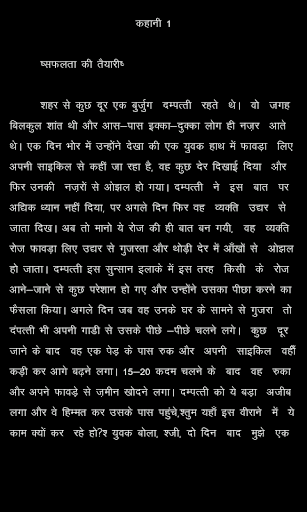 कहानी 1
ष्सफलता की तैयारीष्
शहर से कुछ दूर एक बुर्जुग दम्पत्ती रहते थे। वो जगह
बिलकुल शांत थी और आस–पास इक्का–दुक्का लोग ही नज़र आते
थे। एक दिन भोर में उन्होंने देखा की एक युवक हाथ में फावड़ा लिए
अपनी साइकिल से कहीं जा रहा है, वह कुछ देर दिखाई दिया और
फिर उनकी नज़रों से ओझल हो गया। दम्पत्ती ने इस बात पर
अधिक ध्यान नहीं दिया, पर अगले दिन फिर वह व्यक्ति उद्यर से
जाता दिख। अब तो मानो ये रोज की ही बात बन गयी, वह व्यक्ति
रोज फावड़ा लिए उद्यर से गुजरता और थोड़ी देर में आँखों से ओझल
हो जाता। दम्पत्ती इस सुन्सान इलाके में इस तरह किसी के रोज
आने–जाने से कुछ परेशान हो गए और उन्होंने उसका पीछा करने का
फैसला किया। अगले दिन जब वह उनके घर के सामने से गुजरा तो
दंपत्ती भी अपनी गाडी से उसके पीछे –पीछे चलने लगे। कुछ दूर
जाने के बाद वह एक पेड़ के पास रुक और अपनी साइकिल वहीँ
कड़ी कर आगे बढ़ने लगा। 15–20 कदम चलने के बाद वह रुका
और अपने फावड़े से ज़मीन खोदने लगा। दम्पत्ती को ये बड़ा अजीब
लगा और वे हिम्मत कर उसके पास पहुंचे,श्तुम यहाँ इस वीराने में ये
काम क्यों कर रहे हो?श्य युवक बोला, श्जी, दो दिन बाद मुझे एक